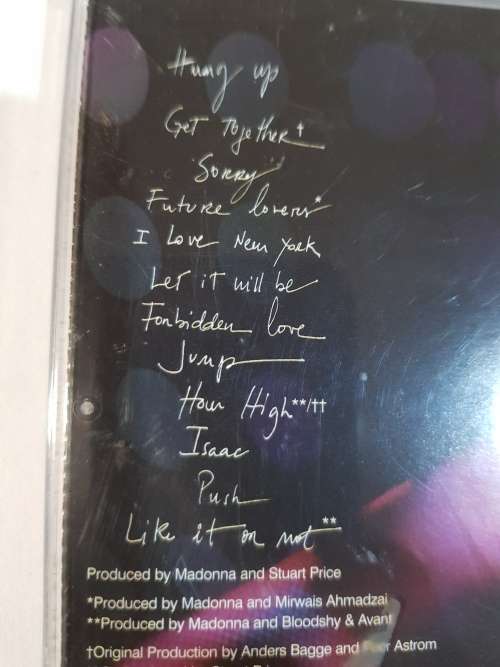 Hung up
Get Together†
Sorry
Future lovers*
I Love New York
Let it will be
Forbidden love
Jump
How High**/††
Isaac
Push
Like it or not**
Produced by Madonna and Stuart Price
*Produced by Madonna and Mirwais Ahmadzai
**Produced by Madonna and Bloodshy & Avant
†Original Production by Anders Bagge and Peer Astrom